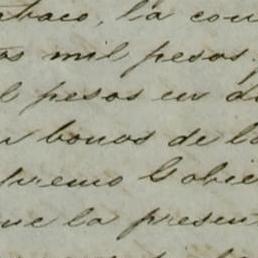 tabaco, la con
os mil pesos.
l pesos en d
n bonos de la
premo Gobie
que la present